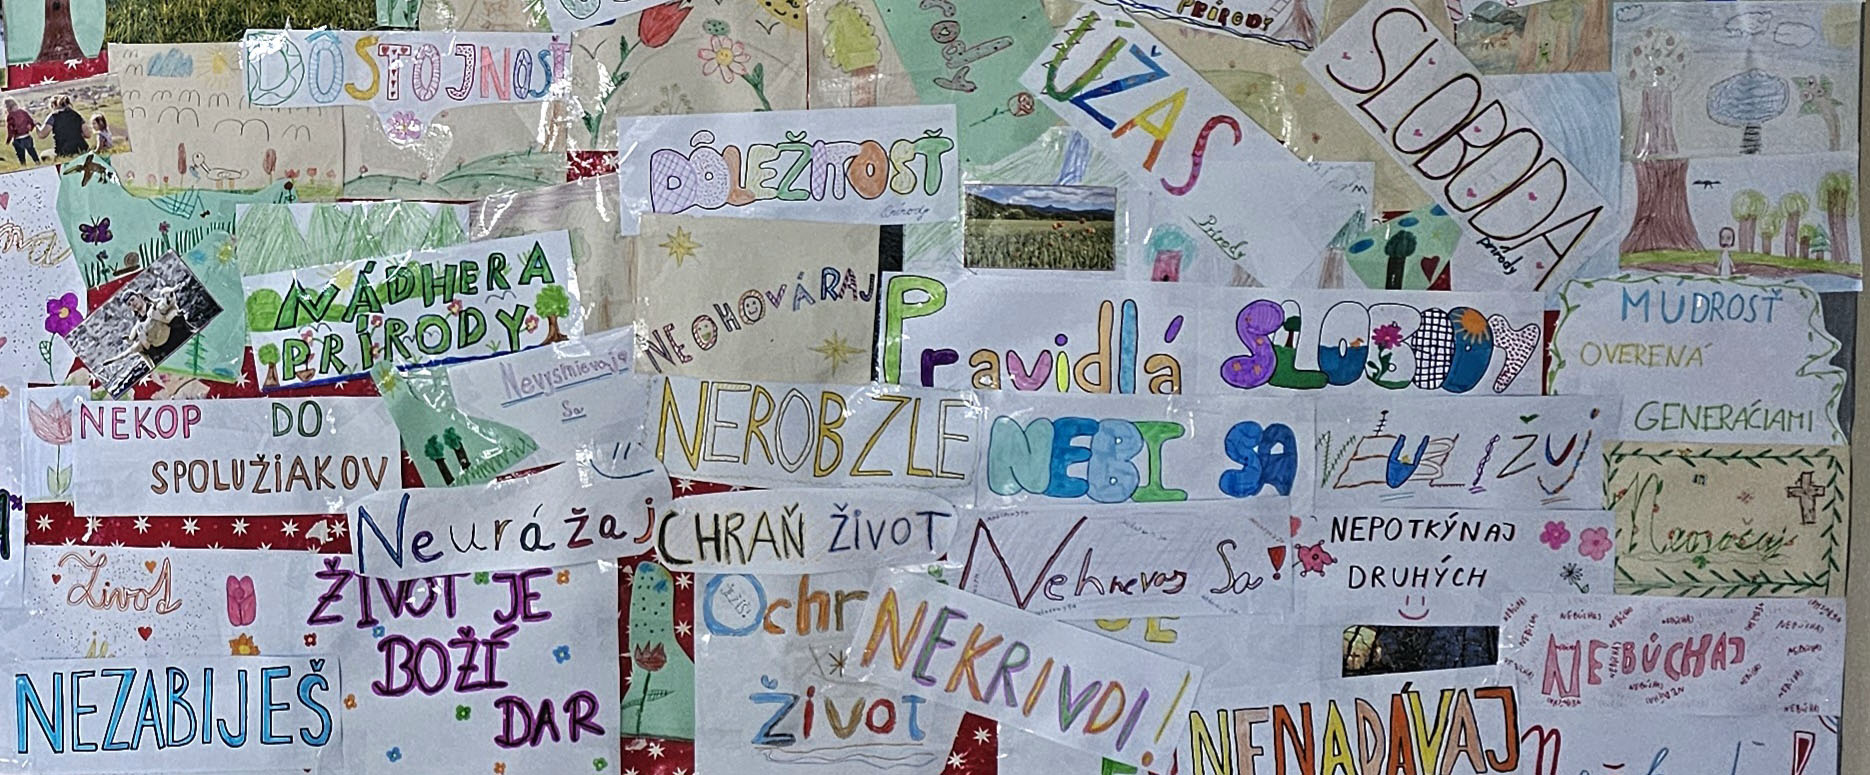 PRÍRODY
DÔSTOJNOSŤ
ÚŽAS
Prírody
SLOBODA
prírody
DÔLEŽITOSŤ
Prírody
NÁDHERA
PRÍRODY
NEOHOVÁRAJ
Pravidlá SLOBODY
MÚDROSŤ
OVERENÁ
GENERÁCIAMI
Nevysmievaj
Sa
NEKOP DO
SPOLUŽIAKOV
NEROB ZLE
NEBI SA
Neurážaj
CHRAŇ ŽIVOT
Nehnevaj Sa!
NEPOTKÝNAJ
DRUHÝCH
Život
ŽIVOT JE
BOŽÍ
DAR
Ochr
život
NEKRIVDI!
NEBÚCHAJ
NEZABIJEŠ
NENADÁVAJ